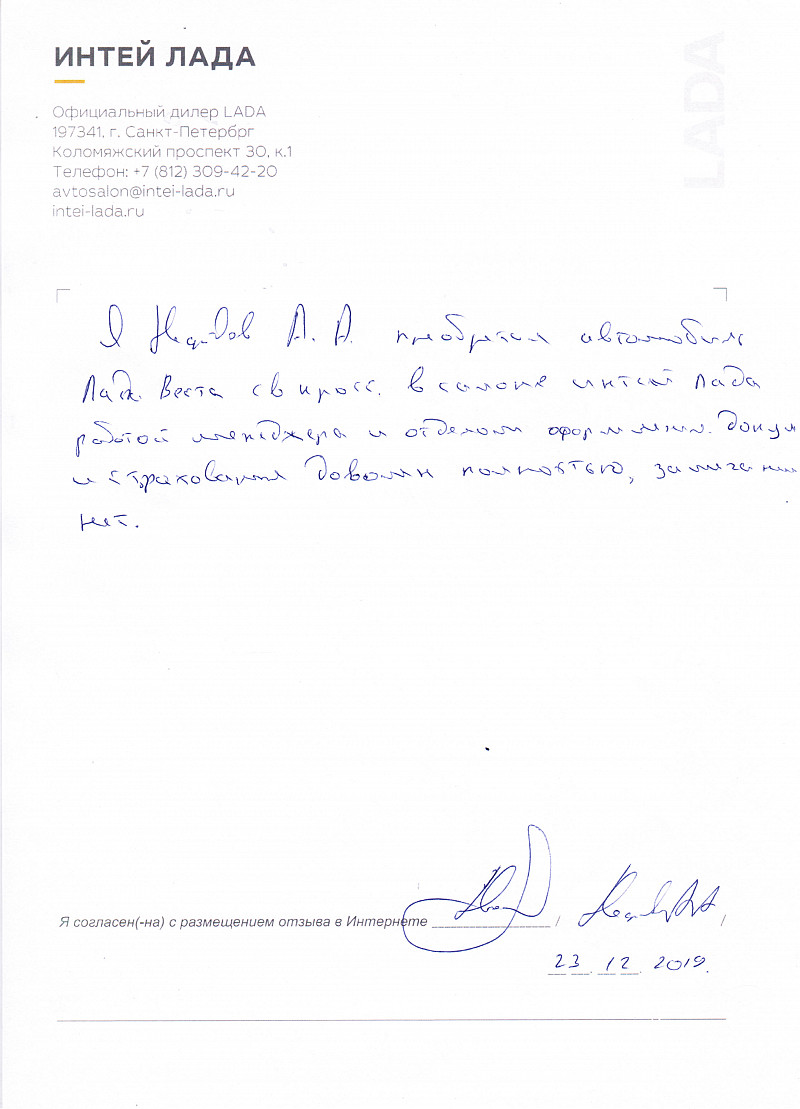 ИНТЕЙ ЛАДА
LADA
Официальный дилер LADA
197341, г. Санкт-Петербрг
Коломяжский проспект 30, к.1
Телефон: +7 (812) 309-42-20
avtosalon@intei-lada.ru
intei-lada.ru
Я А. А. преобретал автомобиль
Лада Веста св кросс. в салоне интей Лада
работой менеджера и отделом оформления докум
и страхования доволен полностью, замечаний
нет.
Я согласен(-на) с размещением отзыва в Интернете / /
23 12 2019.